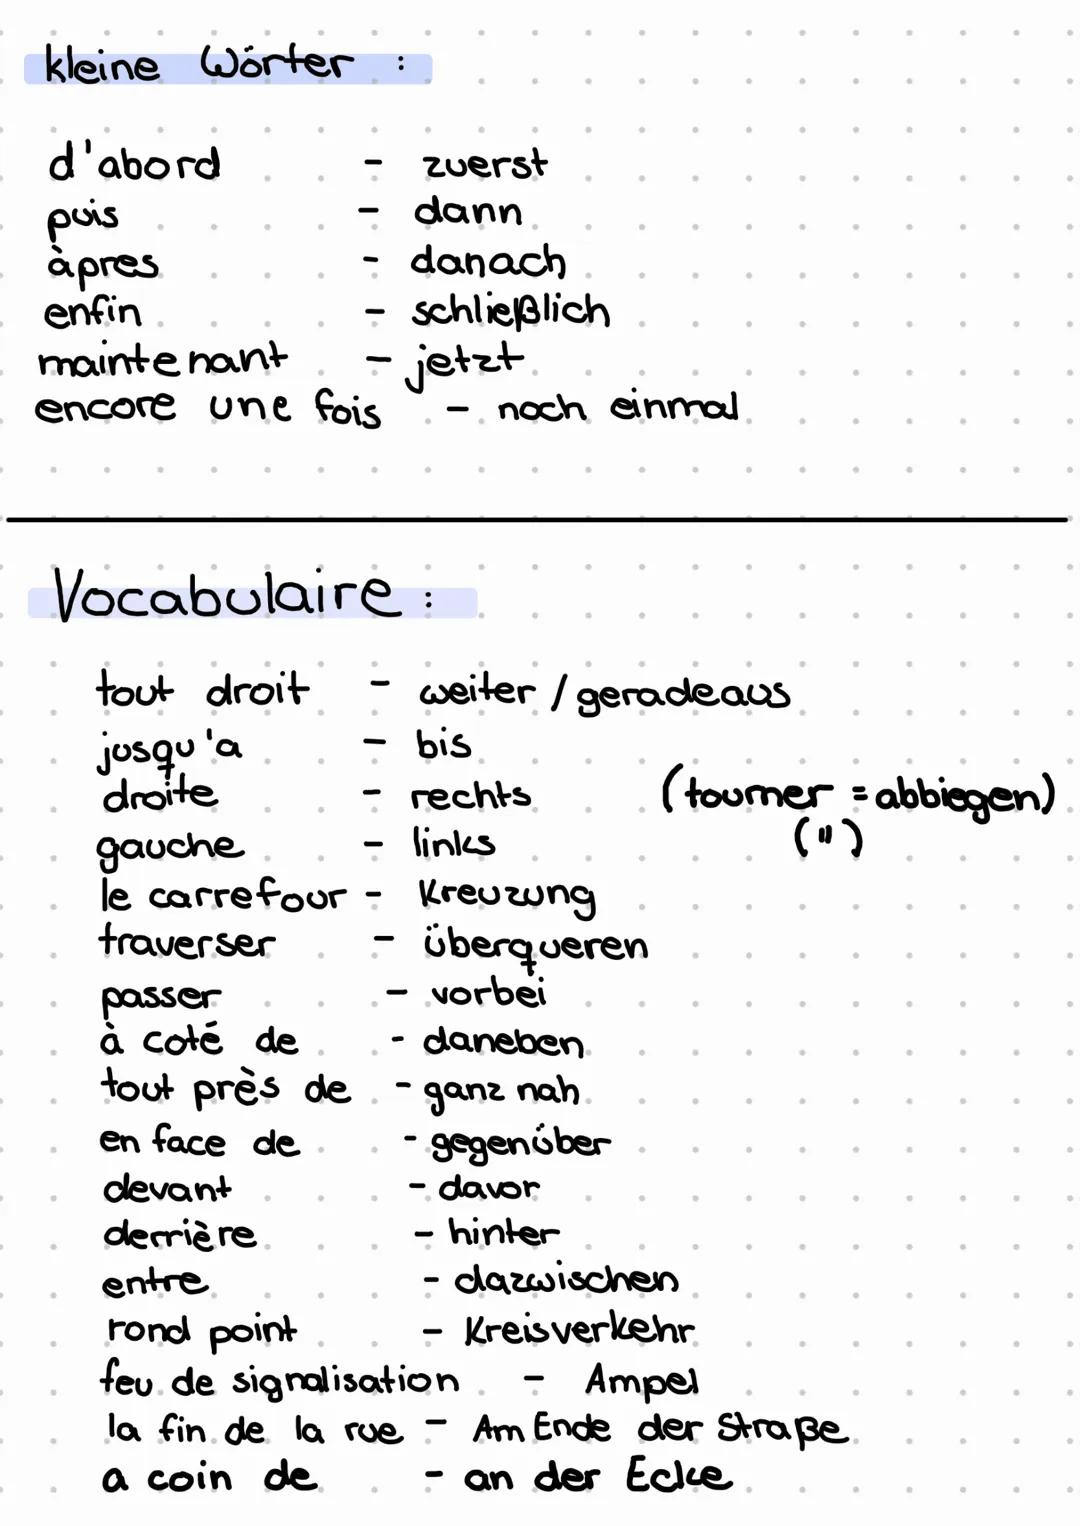 kleine Wörter :
d'abord - zuerst
puis - dann
àpres - danach
enfin - schließlich
maintenant - jetzt
encore une fois - noch einmal
Vocabulaire :
tout droit - weiter / geradeaus
jusqu'a - bis
droite - rechts (tourner = abbiegen)
gauche - links (")
le carrefour - Kreuzung
traverser - überqueren
passer - vorbei
à coté de - daneben
tout près de - ganz nah
en face de - gegenüber
devant - davor
derrière - hinter
entre - dazwischen
rond point - Kreisverkehr
feu de signalisation - Ampel
la fin de la rue - Am Ende der Straße
a coin de - an der Ecke